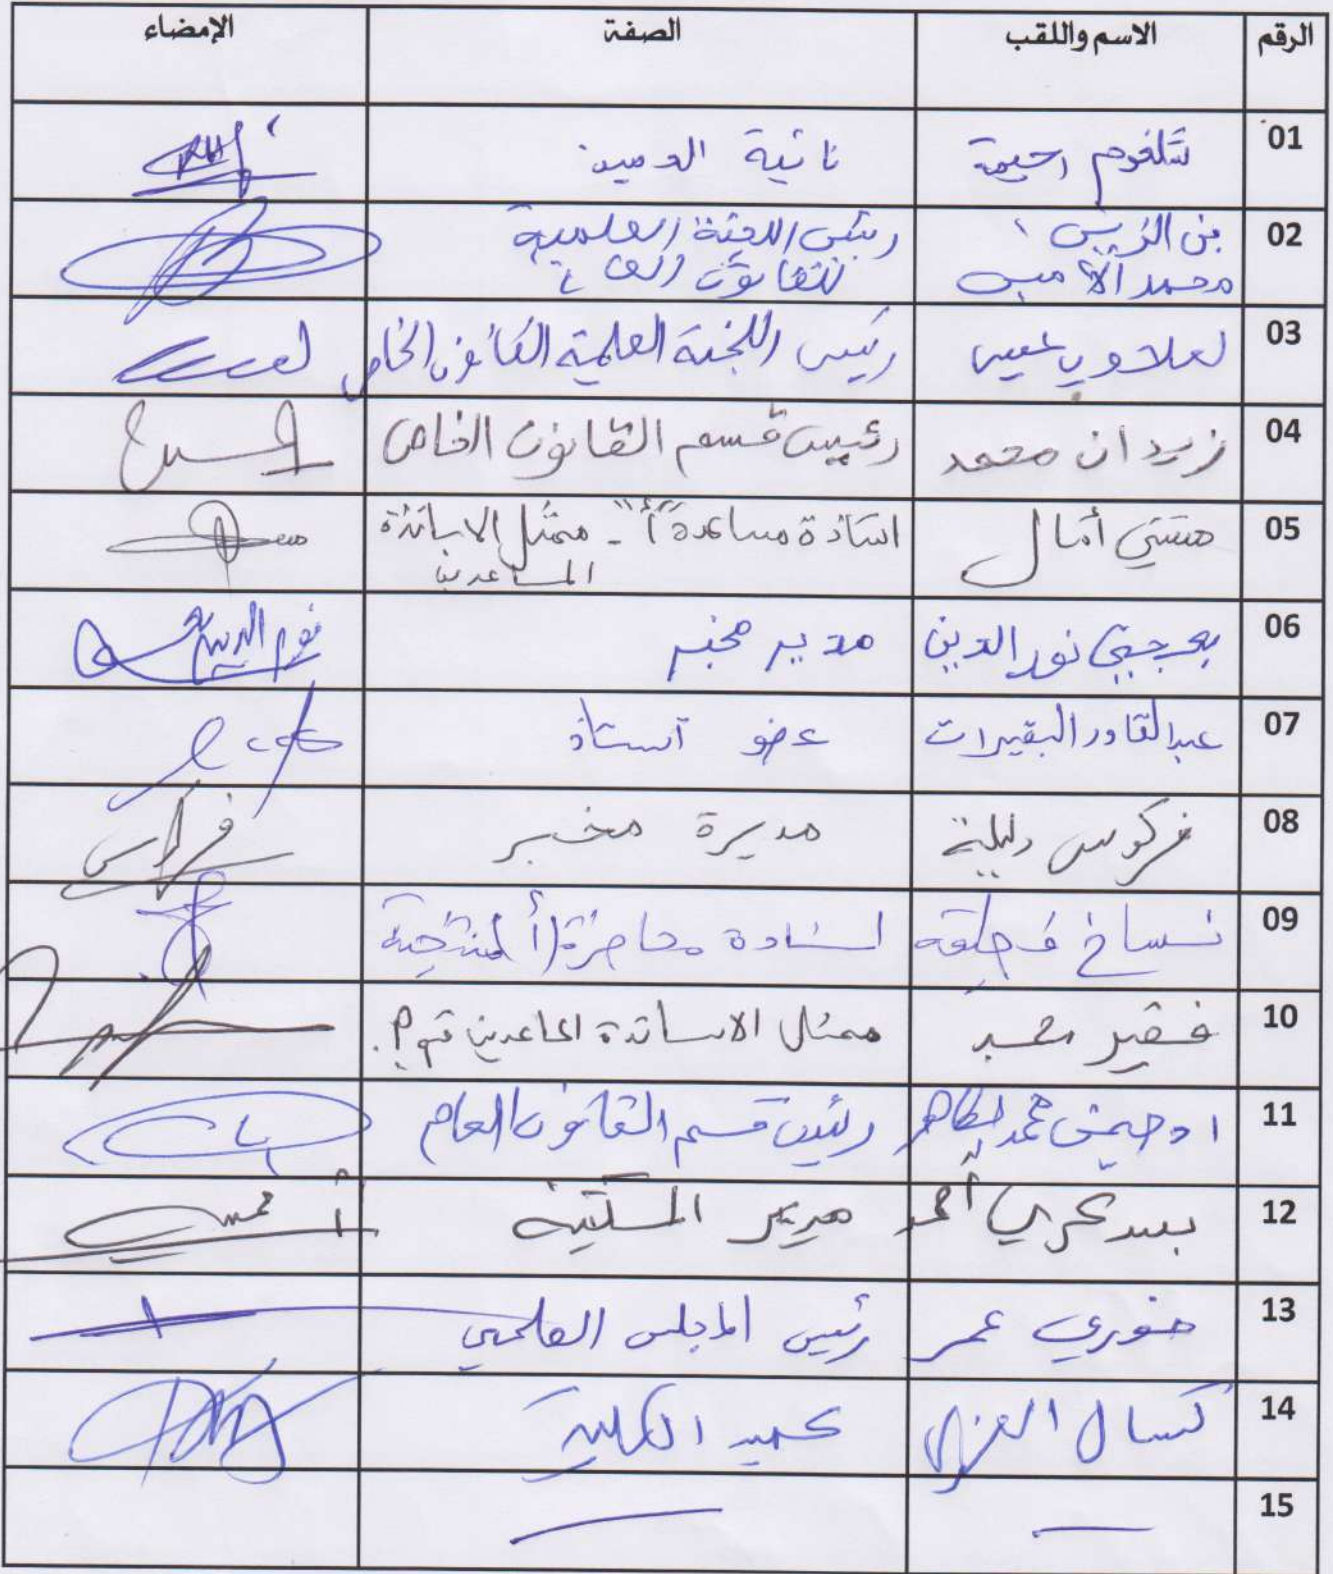 الرقم الاسم واللقب الصفة الإمضاء
01 رحيمة نائبة العميد
02 بن الزين رئيس اللجنة العلمية
محمد الأمين للقانون العام
03 لعلاوي عيسى رئيس اللجنة العلمية القانون الخاص
04 زيدان محمد رئيس قسم القانون الخاص
05 آمال استاذة مساعدة "أ" - ممثل الاساتذة
المساعدين
06 نور الدين مدير مخبر نور الدين
07 عبد القادر البقيرات عضو أستاذ
08 فركوس دليلة مديرة مخبر
09 نساخ استاذة محاضرة أ
10 فقير محمد ممثل الاساتذة المساعدين
11 محمد الطاهر رئيس قسم القانون العام
12 أحمد مدير المكتبة
13 خوري عمر رئيس المجلس العلمي
14 كسال عميد الكلية
15